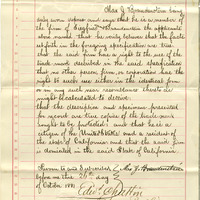 Chas J Brandenstein being
duly sworn deposes and says that he is a member of
the firm of Siegfried & Brandenstein the applicants
above named that he verily believes that the facts
set forth in the foregoing specification are true
that the said firm has a right to the use of the
trade mark described in the said specification
that no other person firm or corporation has the
right to such use either in the identical form
or in any such near resemblance thereto as
might be calculated to deceive
that the description and specimens presented
for record are true copies of the trade-mark
sought to be protected; and that he is a
citizen of the United States and a resident of
the state of California and that the said firm
is domiciled in said State of California.
Sworn to and Subscribed Chas J. Brandenstein
before me this 26th day
of October 1881